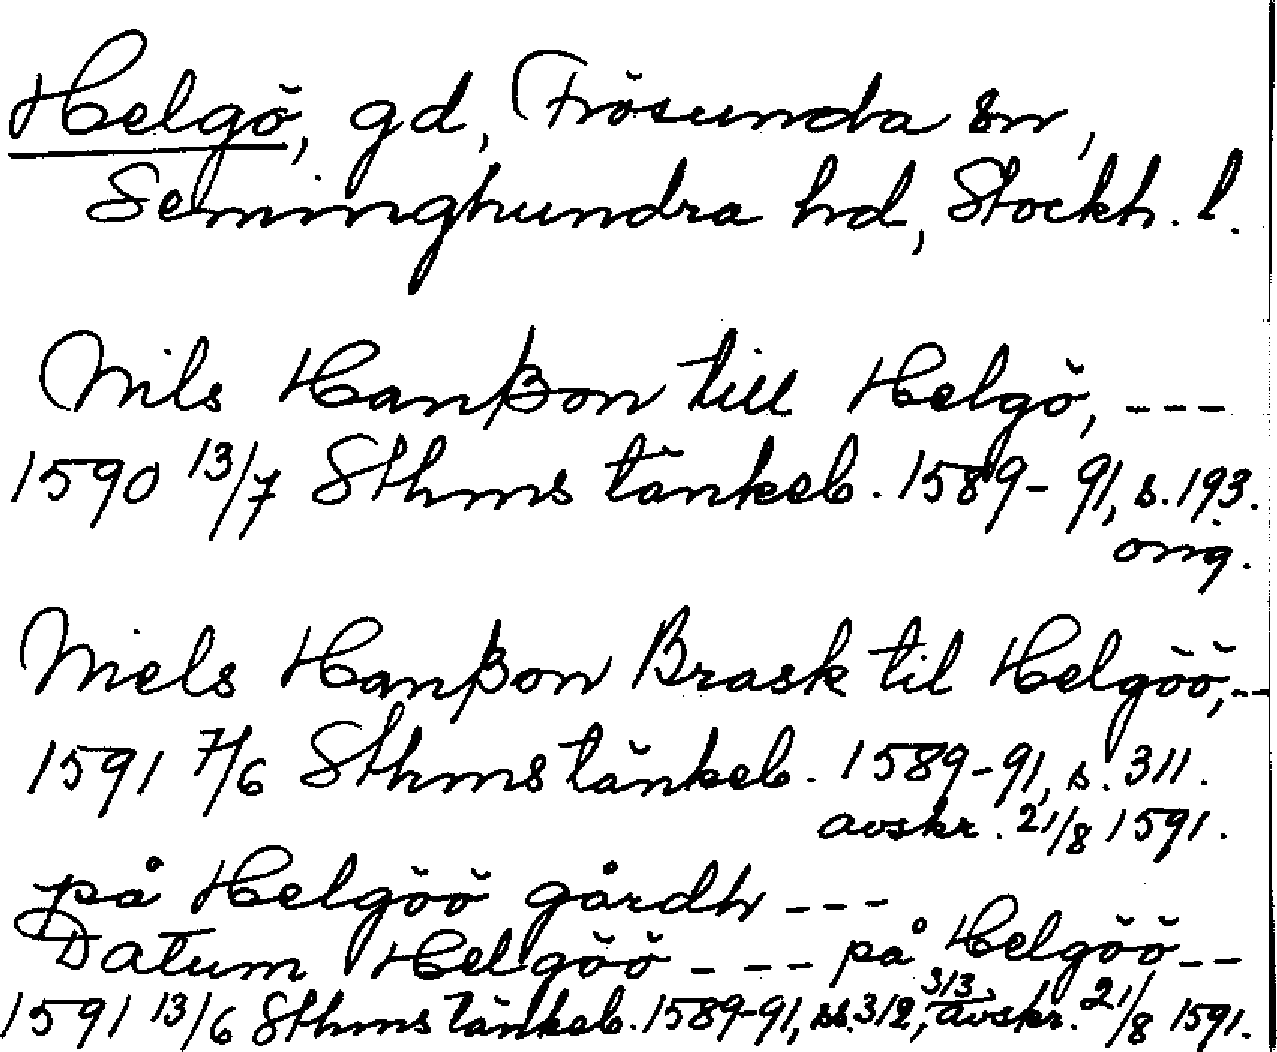 Helgö, gd, Frösunda sn,
Seminghundra hd, Stockh. l.
Nils Hanßon till Helgö, ---
1590 13/7 Sthms tänkeb. 1589-91, s. 193.
orig.
Niels Hanßon Brask til Helgöö, --
1591 7/6 Sthms tänkeb. 1589-91, s. 311.
avskr. 21/8 1591.
på Helgöö gårdh ---
Datum Helgöö --- på Helgöö --
1591 13/6 Sthms tänkeb. 1589-91, ss. 312, 313, avskr. 21/8 1591.